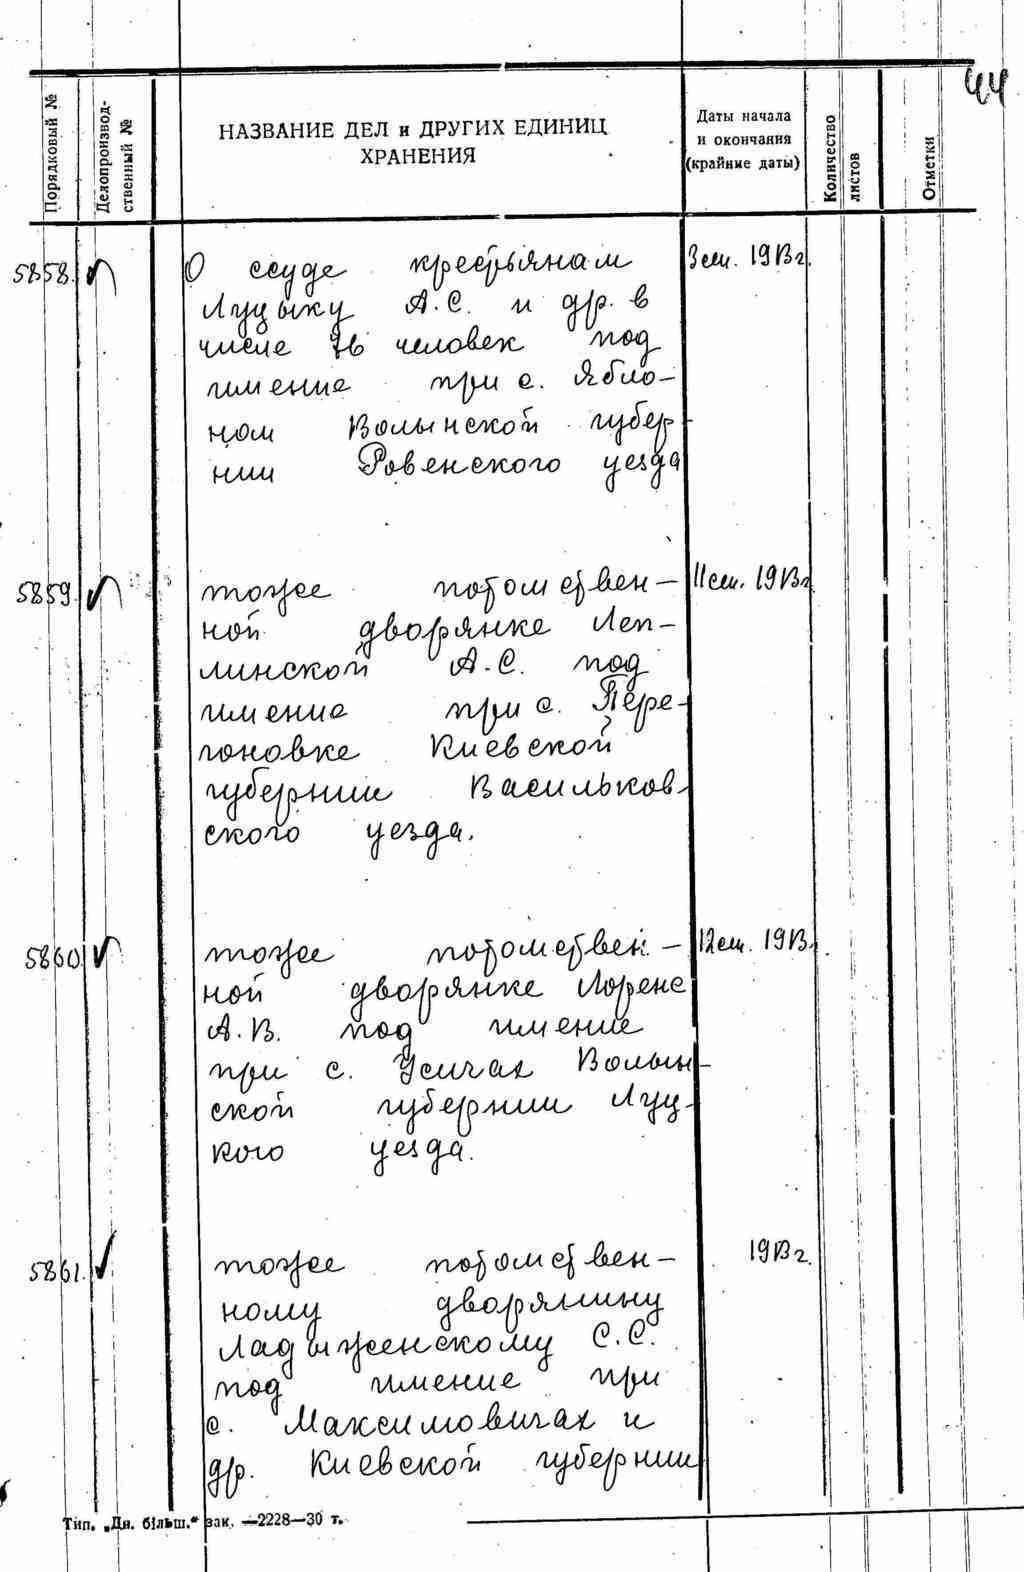 44
Порядковый №
Делопроизвод-
ственный №
НАЗВАНИЕ ДЕЛ и ДРУГИХ ЕДИНИЦ
ХРАНЕНИЯ
Даты начала
и окончания
(крайние даты)
Количество
листов
Отметки
5858. О ссуде крестьянам 3 сен. 1913 г.
Луцыку А.С. и др. в
числе 76 человек под
имение при с. Ябло-
ном Волынской губер
нии Ровенского уезда
5859. тоже потомствен- 11 сен. 1913 г
ной дворянке Леп-
линской А.С. под
имение при с. Пере-
гоновке Киевской
губернии Васильков-
ского уезда.
5860. тоже потомствен- 12 сен. 1913.
ной дворянке Лоренс
А.В. под имение
при с. Усичах Волын-
ской губернии Луц-
кого уезда.
5861. тоже потомствен- 1913 г.
ному дворянину
Ладыженскому С.С.
под имение при
с. Максимовичах и
др. Киевской губернии
Тип. „Дн. більш.“ зак. —2228—30 т.